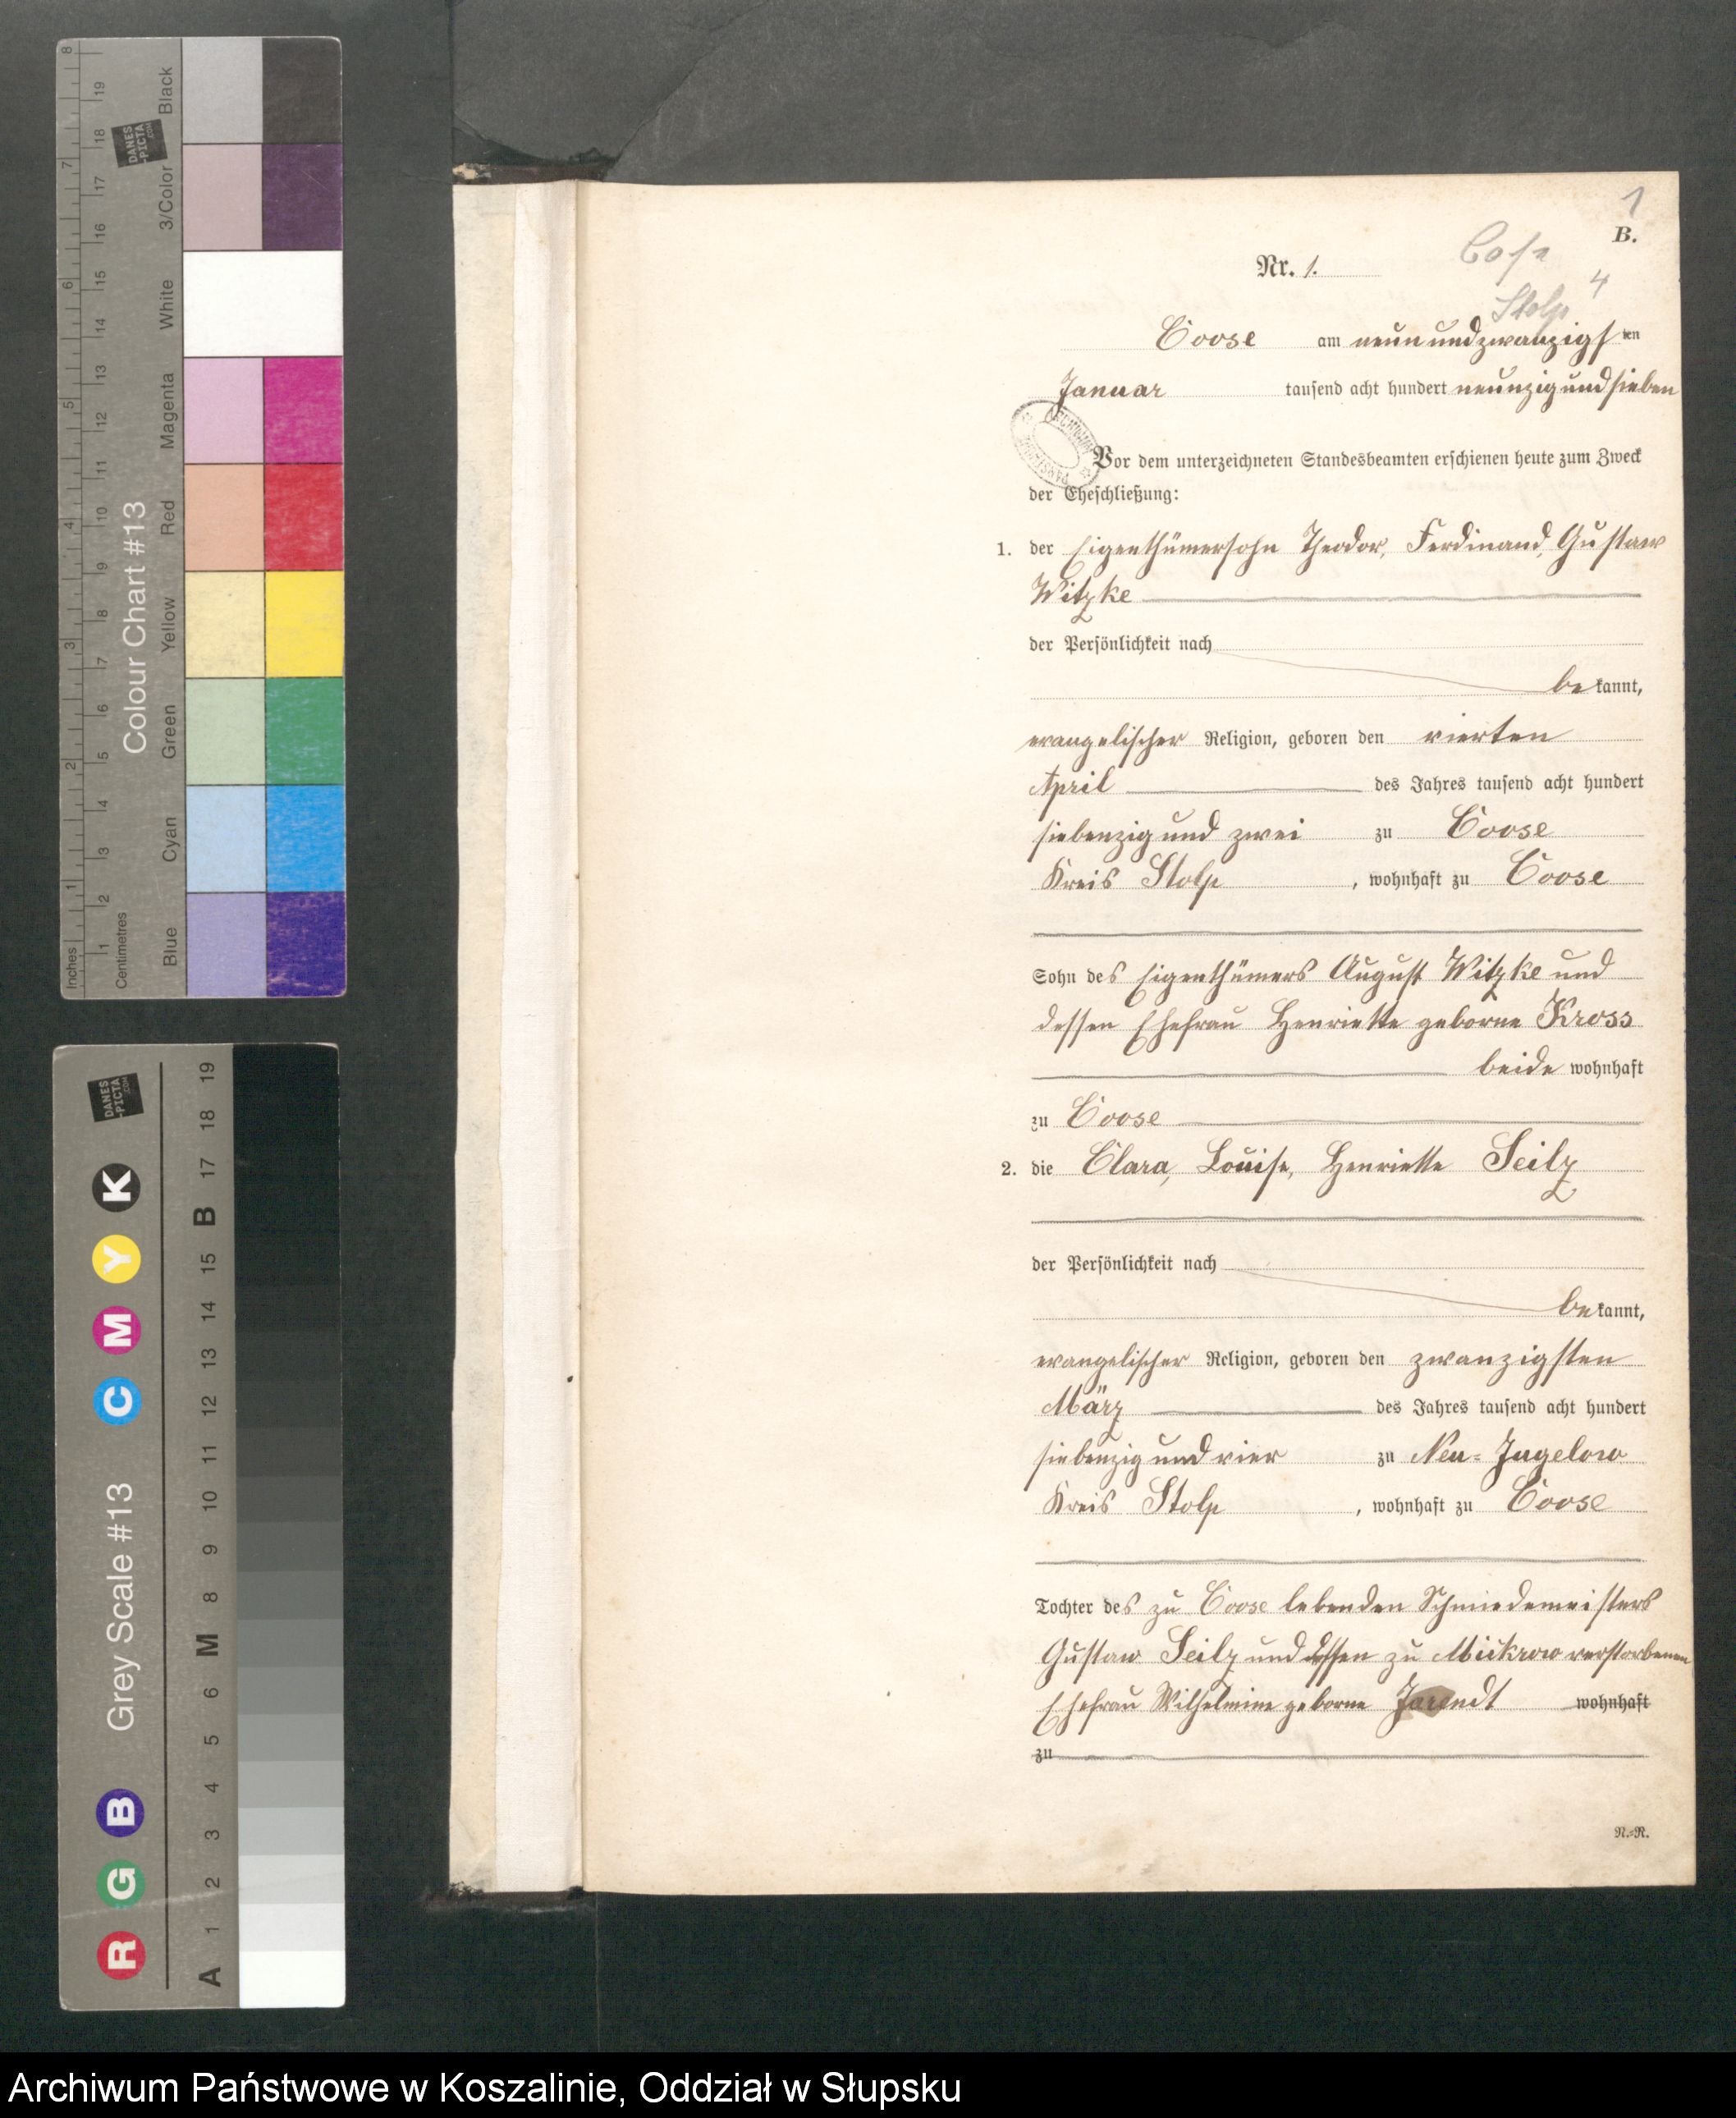 8 7 6 5 4 3 2 1 Inches
19 18 17 16 15 14 13 12 11 10 9 8 7 6 5 4 3 2 1 Centimetres
DANES
-PICTA
.COM
Colour Chart #13
Black
3/Color
White
Magenta
Red
Yellow
Green
Cyan
Blue
DANES
-PICTA
.COM
Grey Scale #13
R G B C M Y K
A 1 2 3 4 5 6 M 8 9 10 11 12 13 14 15 B 17 18 19
1
B.
Nr. 1.
4
Stolp
Coose am neunundzwanzigsten
Januar tausend acht hundert neunzig und sieben
Vor dem unterzeichneten Standesbeamten erschienen heute zum Zweck
der Eheschließung:
1. der Eigenthümersohn Theodor, Ferdinand, Gustaw
Witzke
der Persönlichkeit nach
bekannt,
evangelischer Religion, geboren den vierten
April des Jahres tausend acht hundert
siebenzig und zwei zu Coose
Kreis Stolp, wohnhaft zu Coose
Sohn des Eigenthümers August Witzke und
dessen Ehefrau Henriette geborne Kross
beide wohnhaft
zu Coose
2. die Clara, Louise, Henriette Seilz
der Persönlichkeit nach
bekannt,
evangelischer Religion, geboren den zwanzigsten
März des Jahres tausend acht hundert
siebenzig und vier zu Neu-Jugelow
Kreis Stolp, wohnhaft zu Coose
Tochter des zu Coose lebenden Schmiedemeisters
Gustaw Seilz und dessen zu Mickrow verstorbenen
Ehefrau Wilhelmine geborne wohnhaft
zu
N.=R.
Archiwum Państwowe w Koszalinie, Oddział w Słupsku